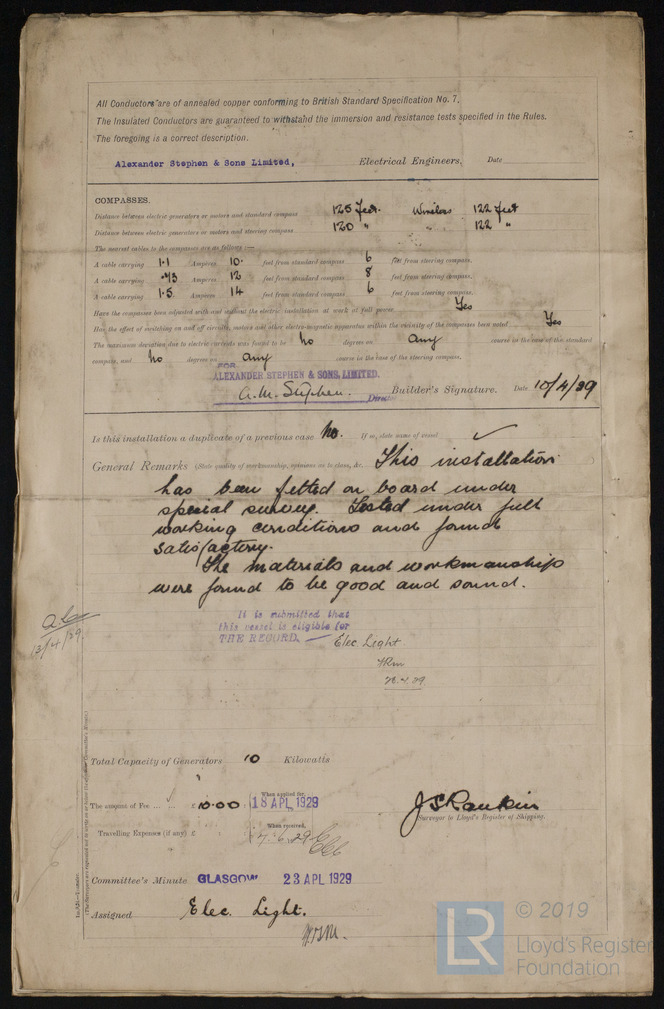 All Conductors are of annealed copper conforming to British Standard Specification No. 7.
The Insulated Conductors are guaranteed to withstand the immersion and resistance tests specified in the Rules.
The foregoing is a correct description.
Alexander Stephen & Sons Limited, Electrical Engineers. Date
COMPASSES.
Distance between electric generators or motors and standard compass 125 feet. Windlass 122 feet
Distance between electric generators or motors and steering compass 120 " " 122 "
The nearest cables to the compasses are as follows :—
A cable carrying 1.1 Amperes 10. feet from standard compass 6 feet from steering compass.
A cable carrying .43 Amperes 12 feet from standard compass 8 feet from steering compass.
A cable carrying 1.5 Amperes 14 feet from standard compass 6 feet from steering compass.
Have the compasses been adjusted with and without the electric installation at work at full power Yes
Has the effect of switching on and off circuits, motors and other electro-magnetic apparatus within the vicinity of the compasses been noted Yes
The maximum deviation due to electric currents was found to be No degrees on any course in the case of the standard
compass, and No degrees on any course in the case of the steering compass.
FOR
ALEXANDER STEPHEN & SONS, LIMITED.
A. M. Stephen. Director Builder's Signature. Date 10/4/29
Is this installation a duplicate of a previous case No. If so, state name of vessel ✓
General Remarks (State quality of workmanship, opinions as to class, &c. This installation
has been fitted on board under
special survey. Tested under full
working conditions and found
satisfactory.
The materials and workmanship
were found to be good and sound.
It is submitted that
this vessel is eligible for
THE RECORD. — Elec. Light
13/4/29.
Total Capacity of Generators 10 Kilowatts
The amount of Fee ... ... £ 10.00 When applied for, 18 APL 1929
J S Rankin
Surveyor to Lloyd's Register of Shipping.
Travelling Expenses (if any) £ When received, 7.6.29
Committee's Minute GLASGOW 23 APL 1929
Assigned Elec. Light.
LR © 2019
Lloyd's Register
Foundation